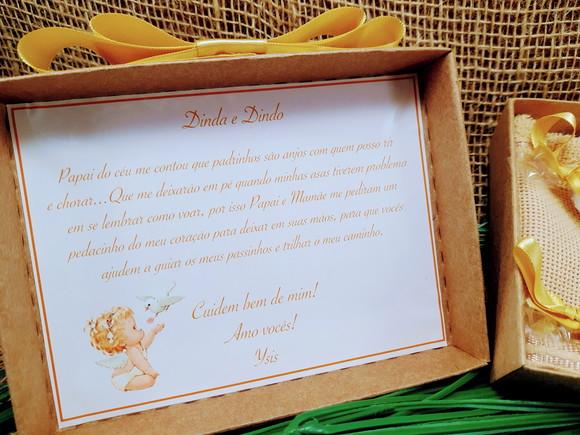 Dinda e Dindo
Papai do céu me contou que padrinhos são anjos com quem posso rir
e chorar...Que me deixarão em pé quando minhas asas tiverem problema
em se lembrar como voar, por isso Papai e Mamãe me pediram um
pedacinho do meu coração para deixar em suas mãos, para que vocês
ajudem a guiar os meus passinhos e trilhar o meu caminho.
Cuidem bem de mim!
Amo vocês!
Ysis